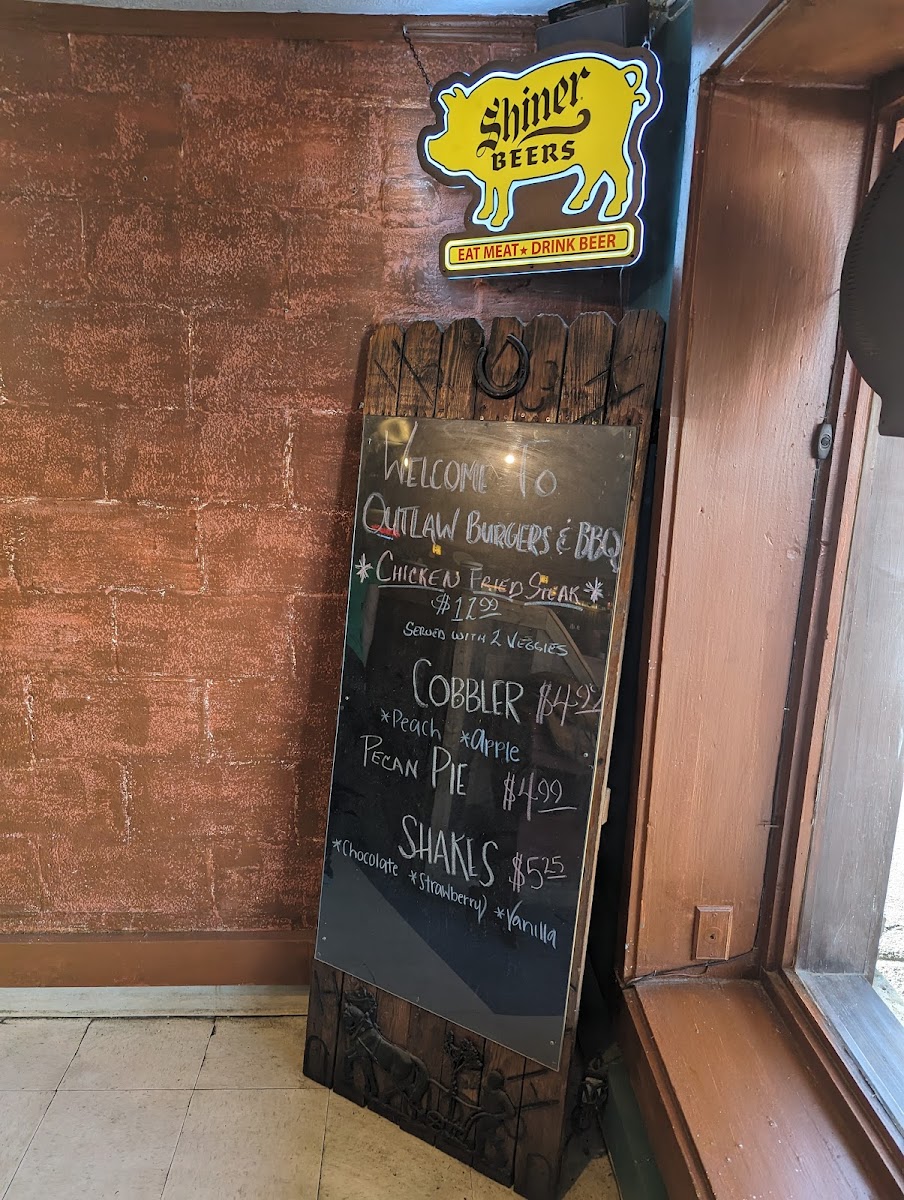 Shiner
BEERS
EAT MEAT★DRINK BEER
WELCOME TO
OUTLAW BURGERS & BBQ
*CHICKEN FRIED STEAK*
$12.99
SERVED WITH 2 VEGGIES
COBBLER $4.99
*Peach *apple
PECAN PIE $4.99
SHAKES $5.25
*Chocolate *Strawberry *Vanilla